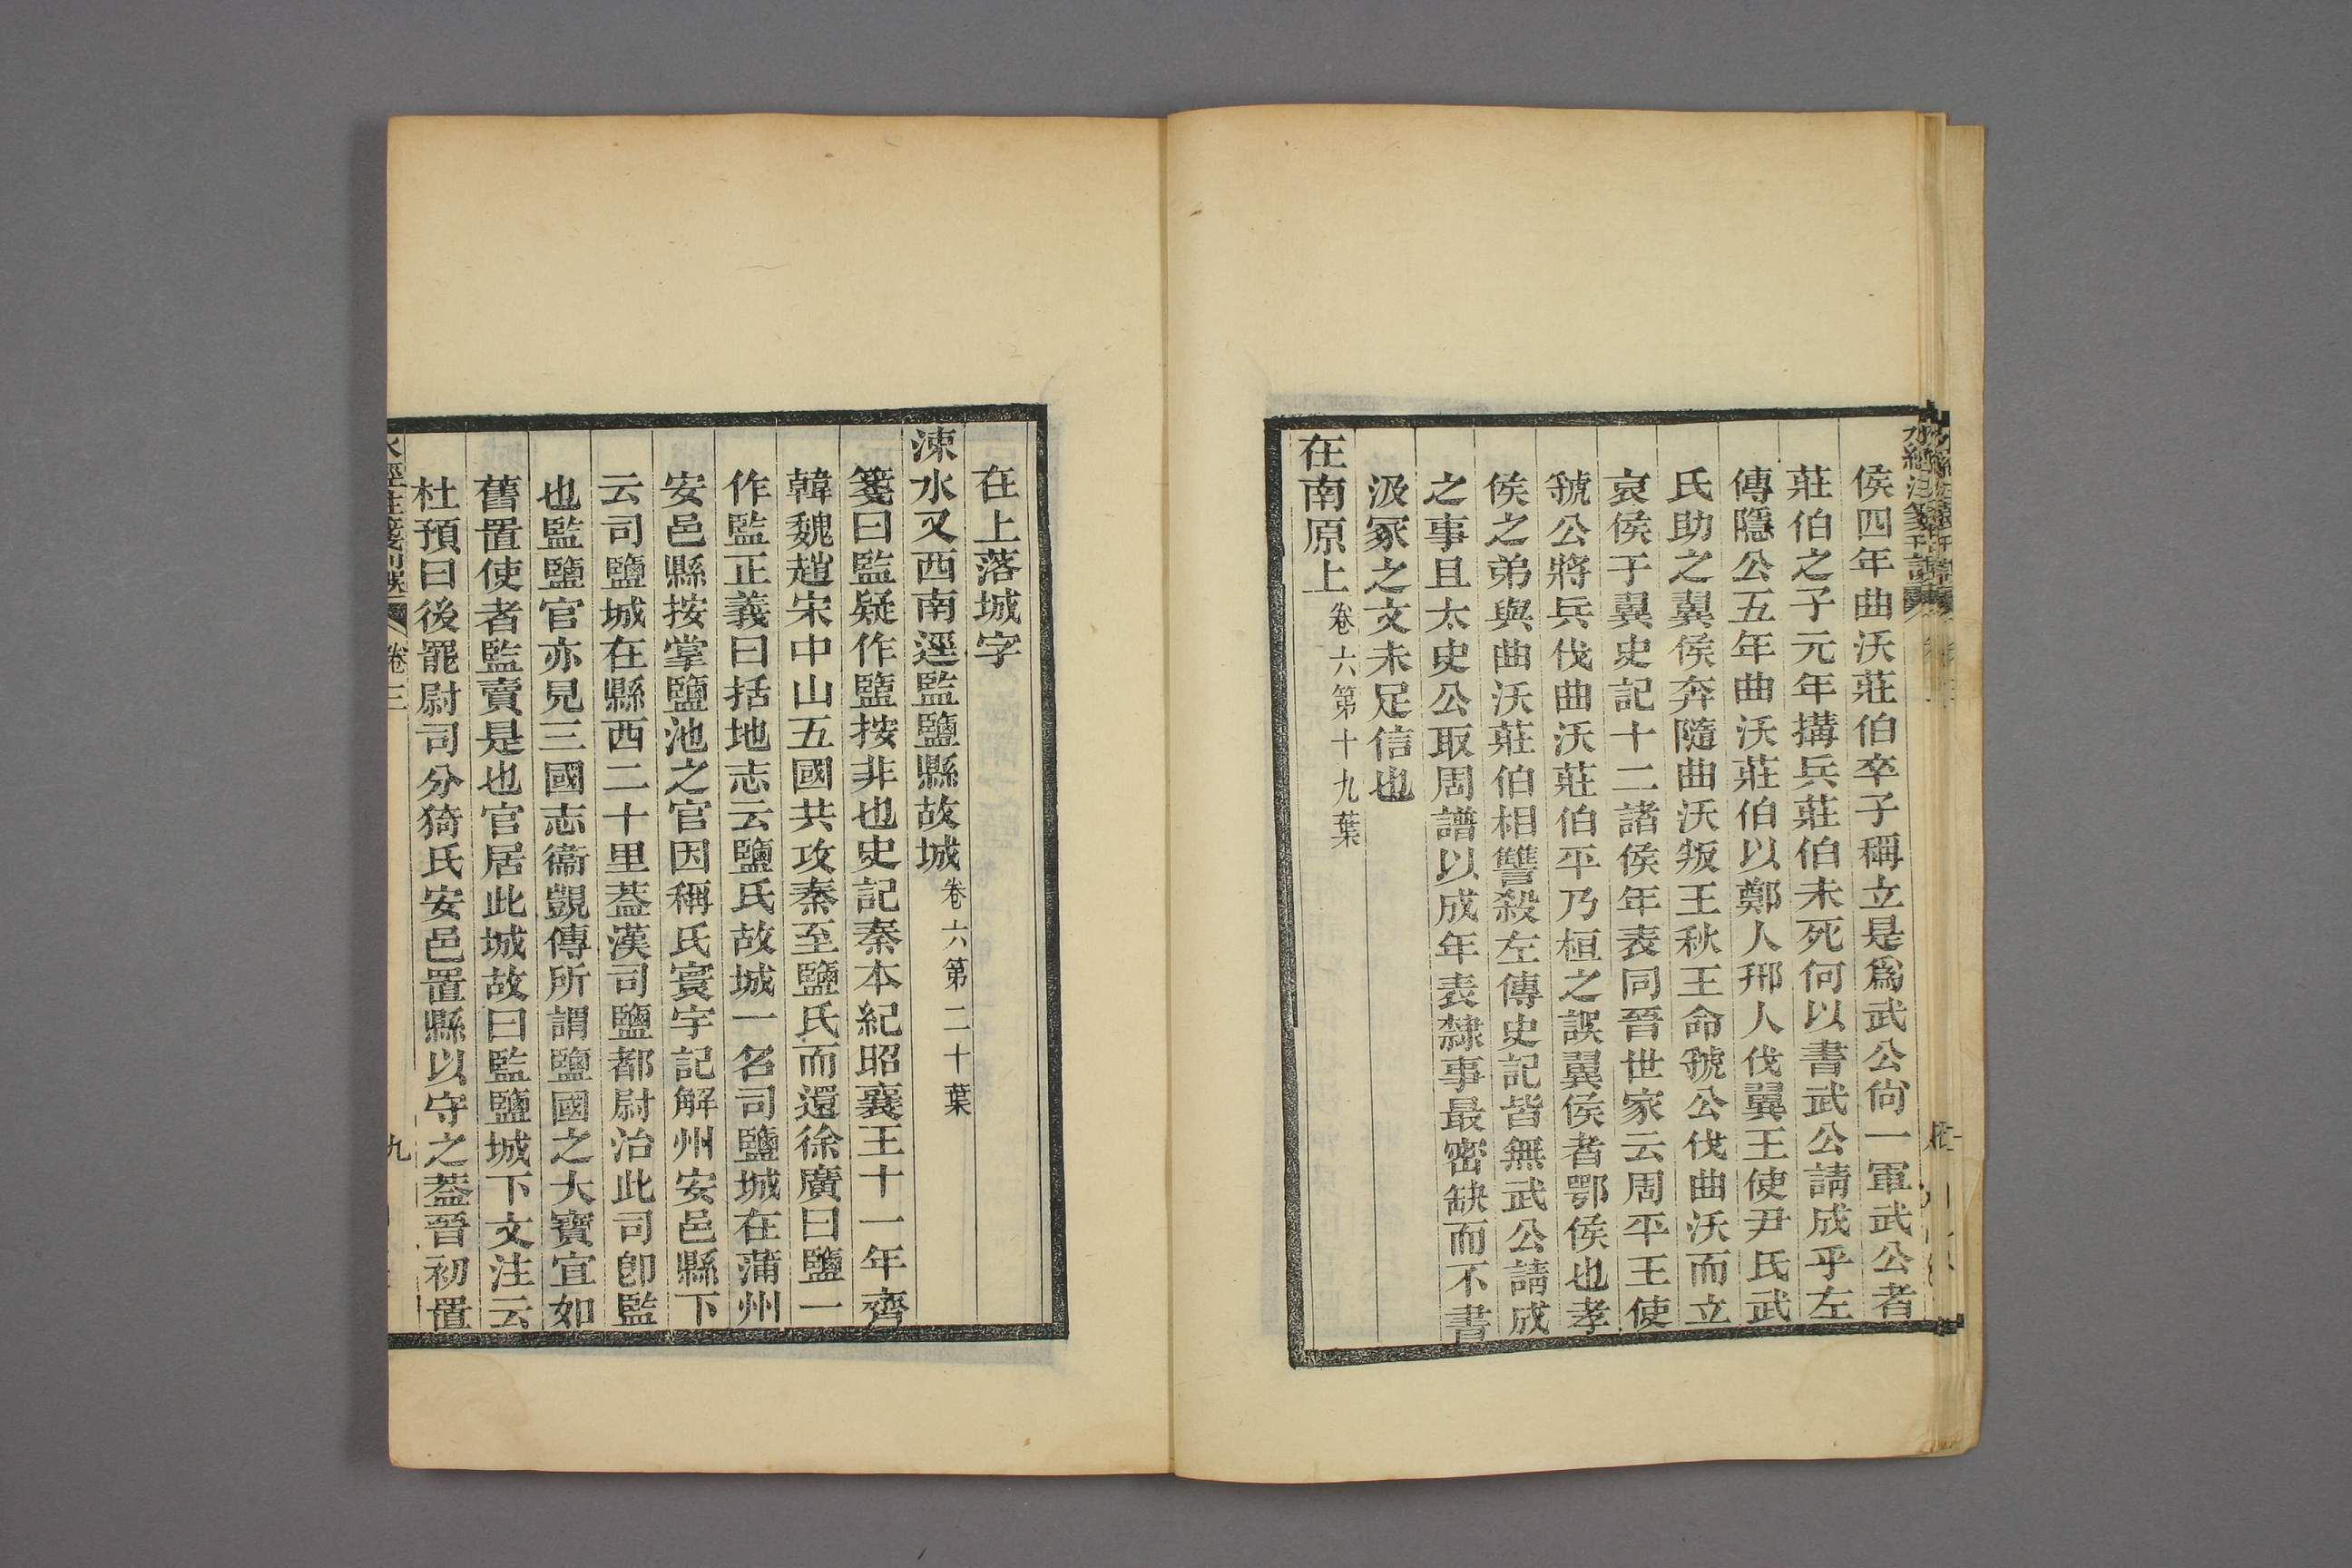 侯四年曲沃莊伯卒子稱立是爲武公尙一軍武公者
莊伯之子元年搆兵莊伯未死何以書武公請成乎左
傳隱公五年曲沃莊伯以鄭人邢人伐翼王使尹氏武
氏助之翼侯奔隨曲沃叛王秋王命虢公伐曲沃而立
哀侯于翼史記十二諸侯年表同晉世家云周平王使
虢公將兵伐曲沃莊伯平乃桓之誤翼侯者鄂侯也孝
侯之弟與曲沃莊伯相讐殺左傳史記皆無武公請成
之事且太史公取周譜以成年表隸事最密缺而不書
汲冢之文未足信也
在南原上卷六第十九葉
在上落城字
涑水又西南逕監鹽縣故城卷六第二十葉
箋曰監疑作鹽按非也史記秦本紀昭襄王十一年齊
韓魏趙宋中山五國共攻秦至鹽氏而還徐廣曰鹽一
作監正義曰括地志云鹽氏故城一名司鹽城在蒲州
安邑縣按掌鹽池之官因稱氏寰宇記解州安邑縣下
云司鹽城在縣西二十里葢漢司鹽都尉治此司卽監
也監鹽官亦見三國志衞覬傳所謂鹽國之大寶宜如
舊置使者監賣是也官居此城故曰監鹽城下文注云
杜預曰後罷尉司分猗氏安邑置縣以守之葢晉初置
水經注箋刊誤 卷三 九